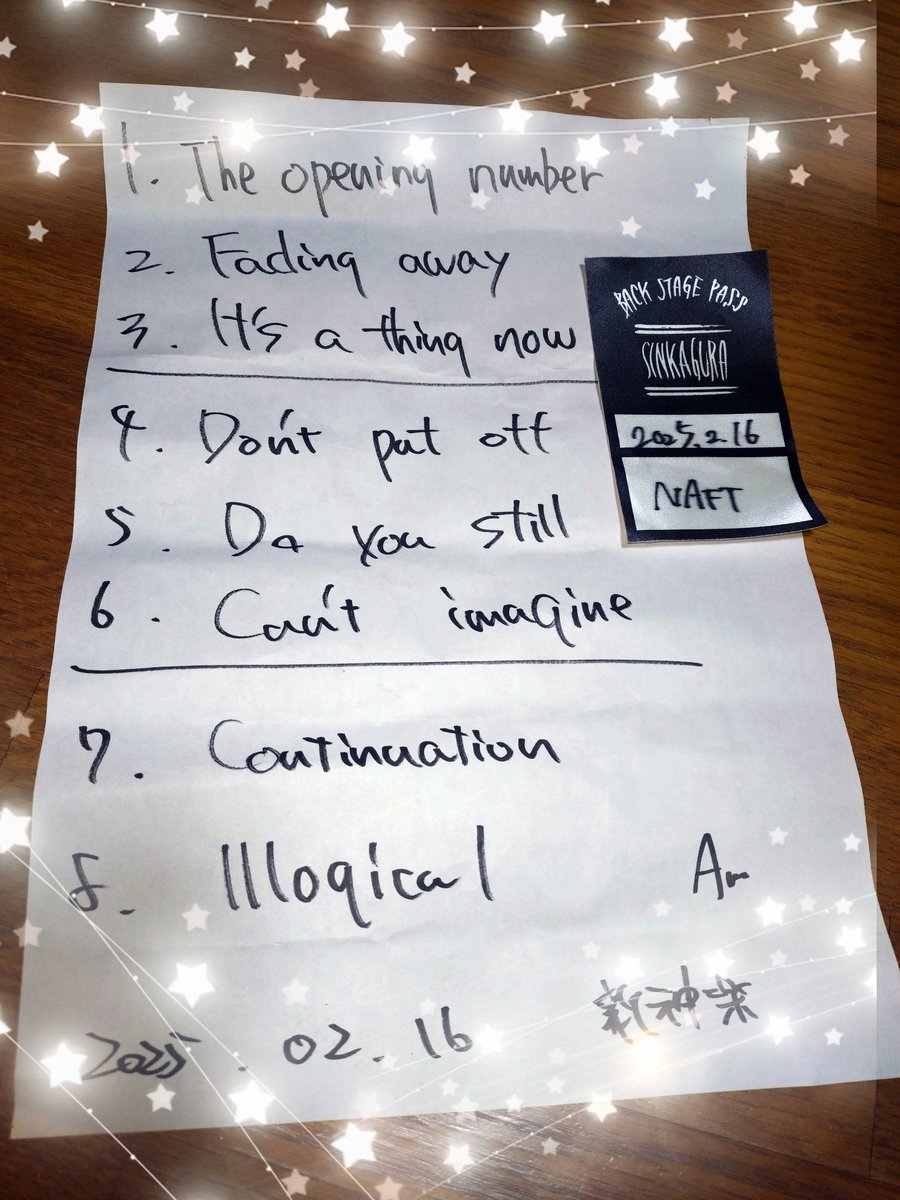 1. The opening number
2. Fading away
3. It's a thing now
4. Don't put off
5. Do you still
6. Can't imagine
7. Continuation
8. Illogical
Am
2025. 02. 16
新神楽
BACK STAGE PASS
SINKAGURA
2025. 2. 16
NAFT